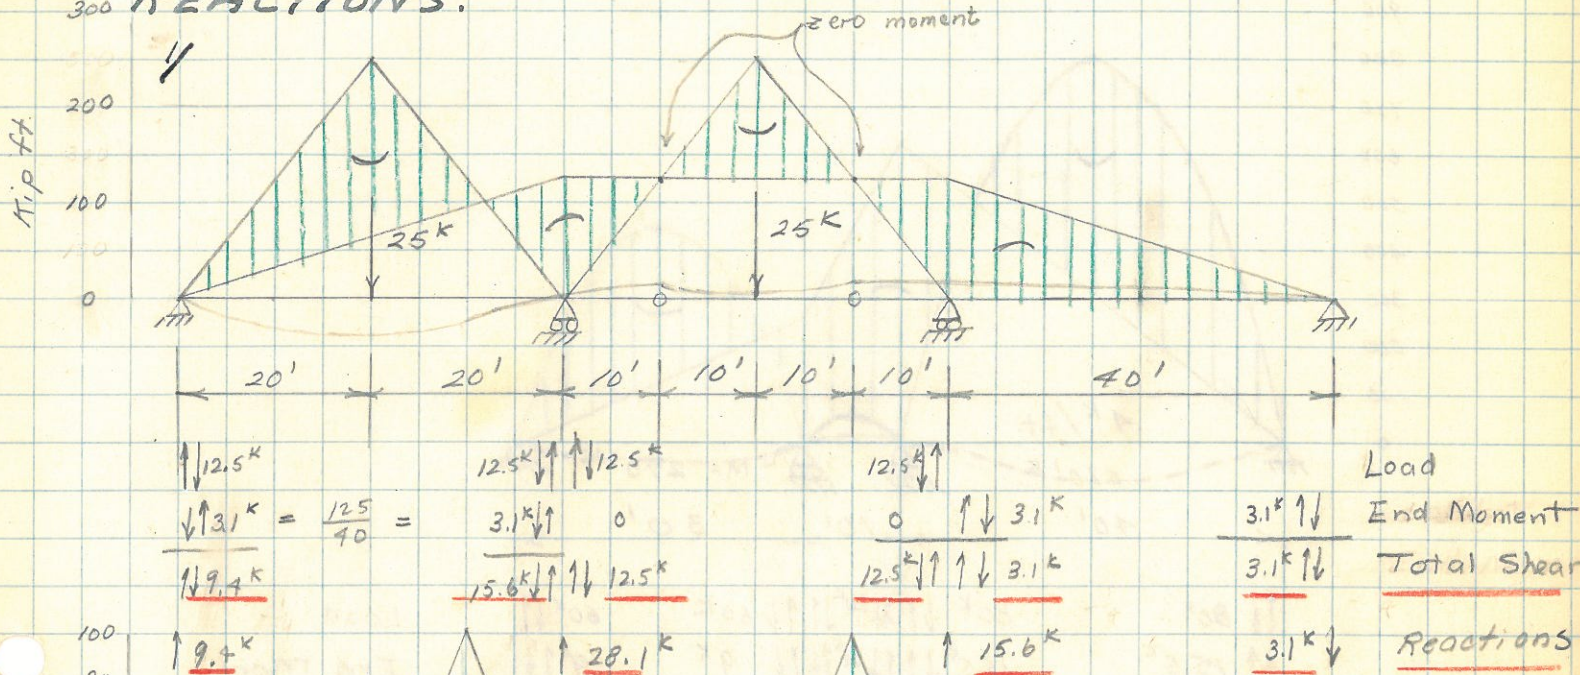 300 REACTIONS.
zero moment
1/
Kip ft.
200
100
0
25K 25K
20' 20' 10' 10' 10' 10' 40'
12.5K 12.5K 12.5K 12.5K Load
3.1K = 125/40 = 3.1K 0 0 3.1K 3.1K End Moment
9.4K 15.6K 12.5K 12.5K 3.1K 3.1K Total Shear
100 9.4K 28.1K 15.6K 3.1K Reactions